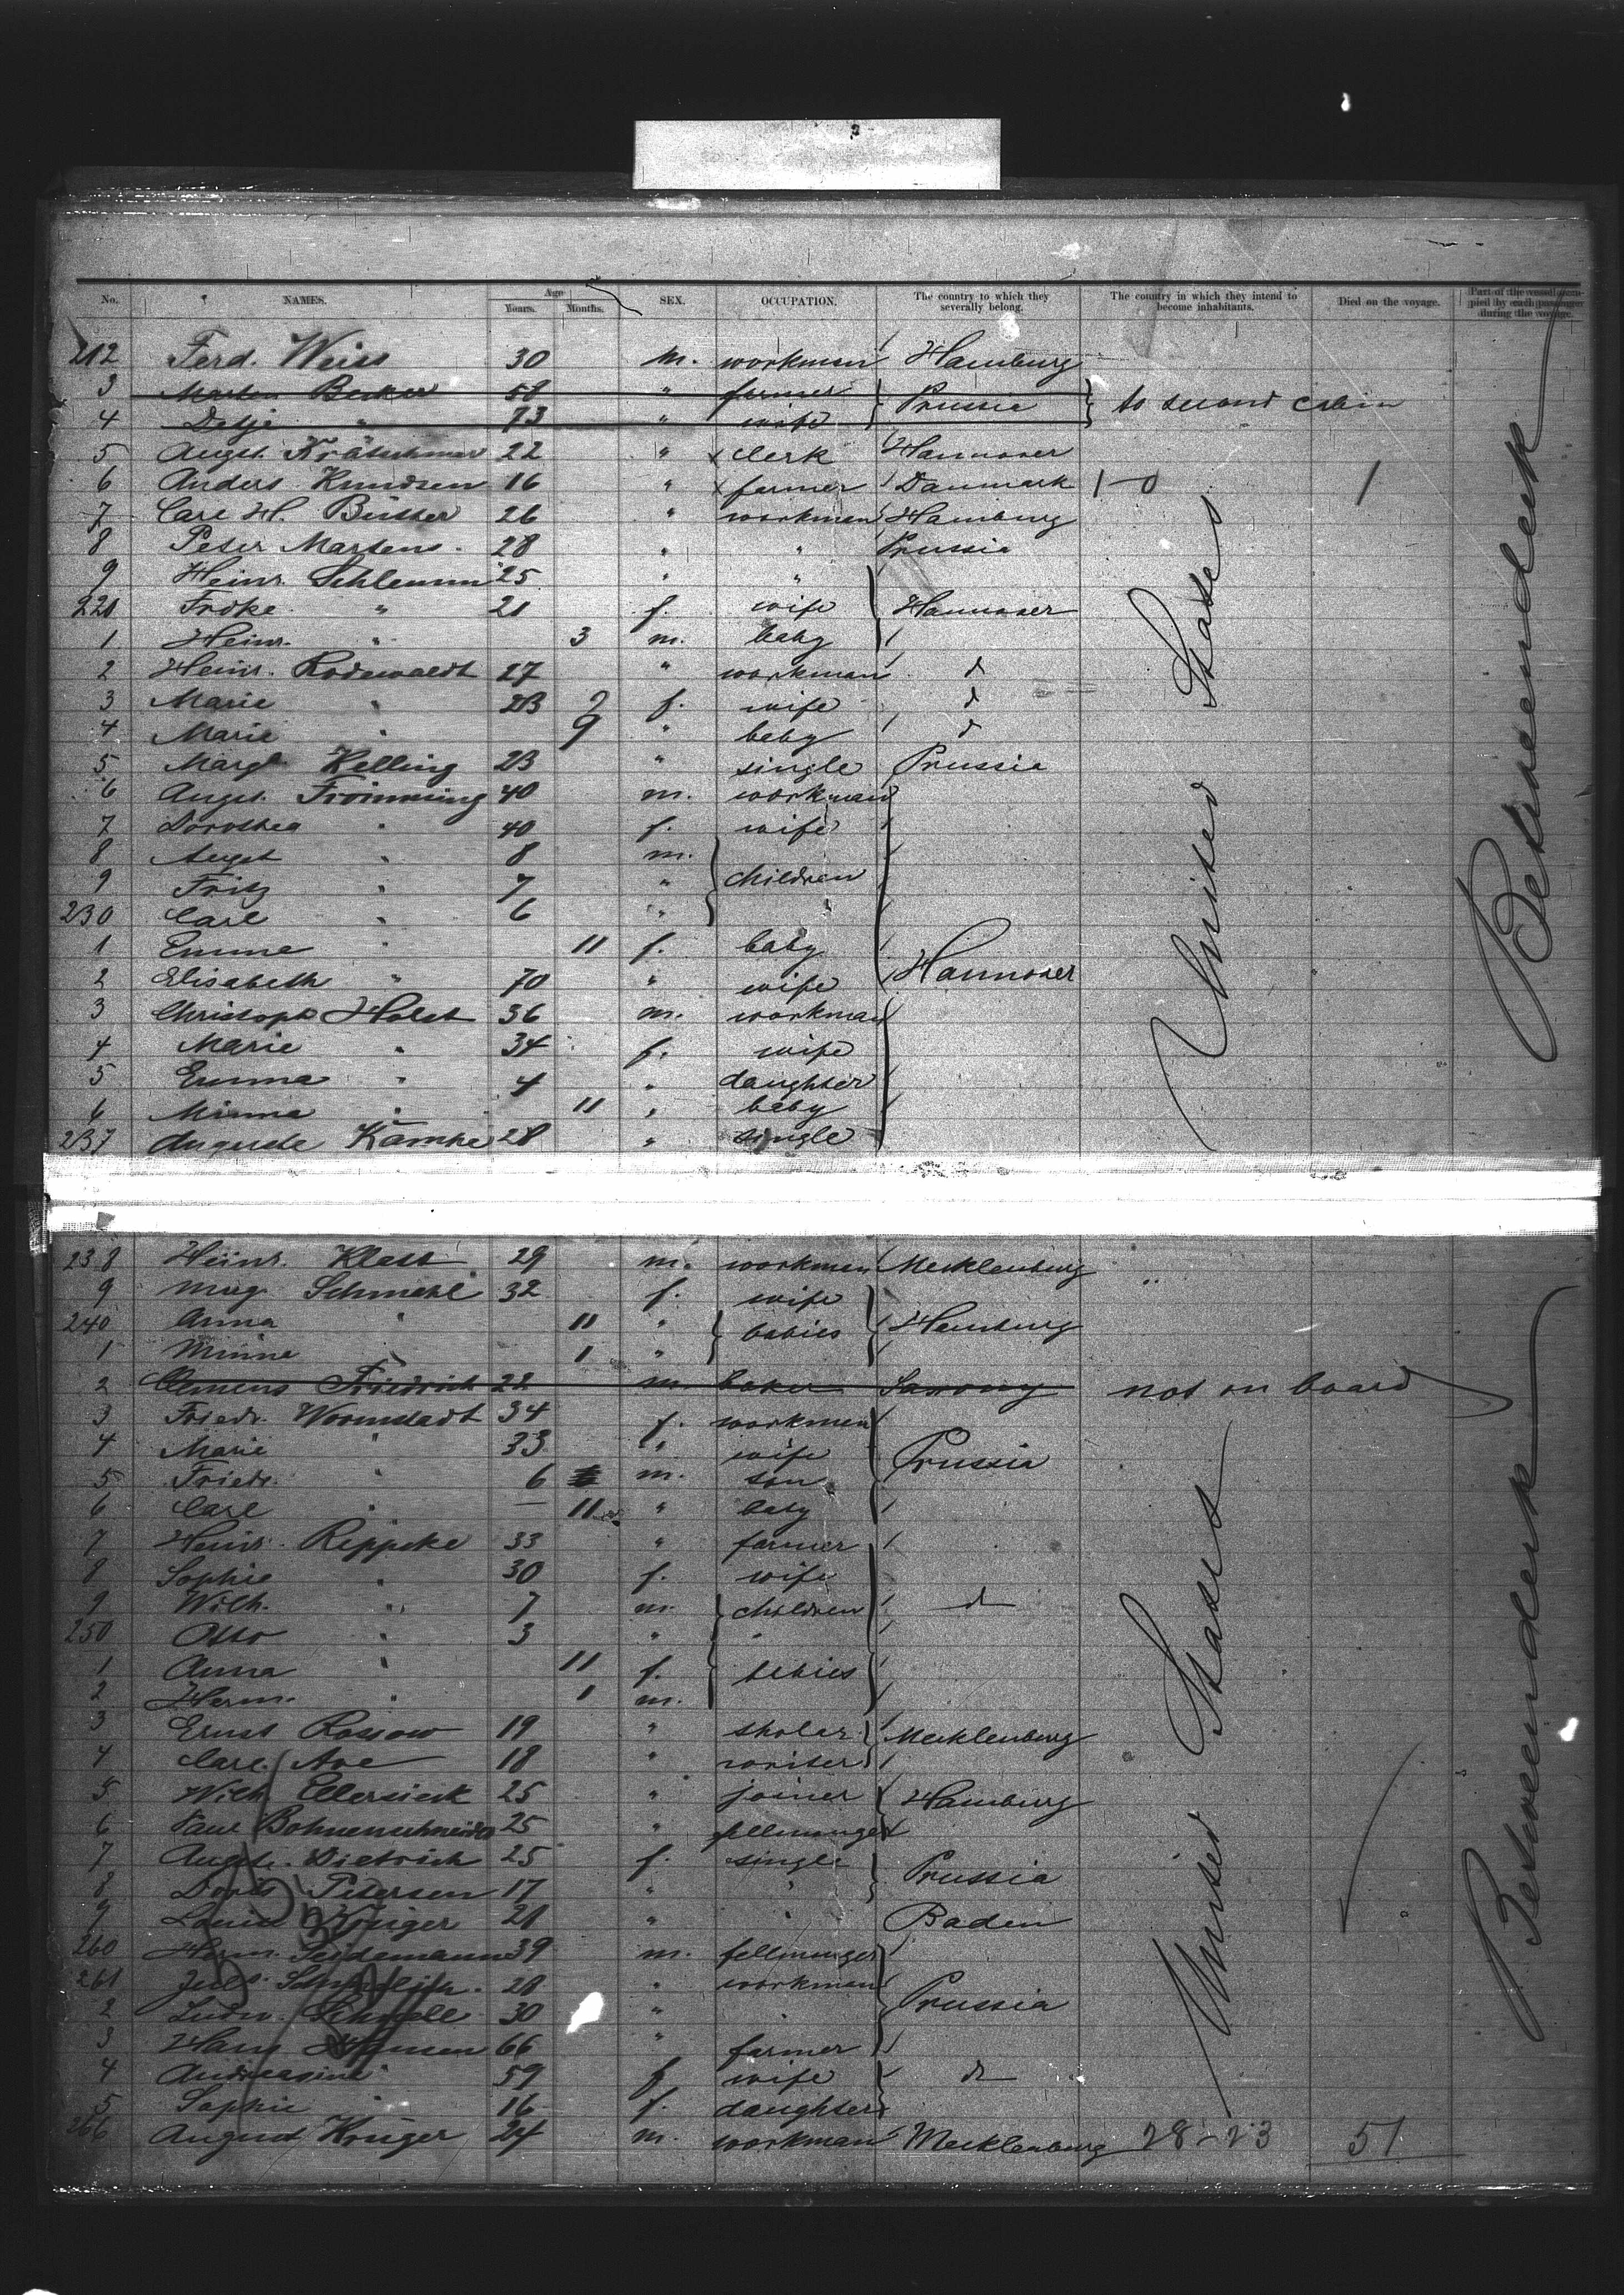 No. NAMES. Age Years. Months. SEX. OCCUPATION. The country to which they severally belong. The country in which they intend to become inhabitants. Died on the voyage. Part of the vessel occupied by each passenger during the voyage.
212 Ferd. Weiss 30 m. workman Hamburg
3 Marten Becker 58 " farmer Prussia to second cabin
4 Detje " 73 " wife
5 Augst. Krätschmer 22 " clerk Hannover
6 Anders Knudsen 16 " farmer Danmark 1-0 1
7 Carl H. Büsser 26 " workmen Hamburg
8 Peter Martens. 28 " " Prussia
9 Heinr. Schlemm 25 " "
220 Froke " 21 f. wife Hannover
1 Heinr. " 3 m. baby
2 Heinr. Rodewaldt 27 " workman d
3 Marie " 23 f. wife d
4 Marie " 9 " baby d
5 Margt. Kelling 23 " single Prussia
6 Augst. Froimming 40 m. workman
7 Dorothea " 40 f. wife
8 Augst " 8 m.
9 Fritz " 7 " children
230 Carl " 6 "
1 Emma " 11 f. baby
2 Elisabeth " 70 " wife Hannover
3 Christoph Holst 36 m. workman
4 Marie " 34 f. wife
5 Emma " 4 " daughter
6 Minna " 11 " baby
237 Auguste Kämke 28 " single
United States
Betweendeck
238 Heinr. Klass 29 m. workmen Mecklenburg
9 Marg. Schmehl 32 f. wife
240 Anna " 11 " babies Hamburg
1 Minna " 1 "
2 Clemens Friedrich 22 m. baker Saxony not on board
3 Friedr. Wormstadt 34 f. workmen
4 Marie " 33 " wife Prussia
5 Friedr. " 6 m. son
6 Carl " — 11 " baby
7 Heinr. Reppeke 33 " farmer
8 Sophie " 30 f. wife
9 Wilh. " 7 m. children d
250 Otto " 3 "
1 Anna " 11 f. babies
2 Herm. " 1 m.
3 Ernst Rossow 19 " skolar Mecklenburg
4 Carl Ave 18 " writer
5 Wilh. Ellersieck 25 " joiner Hamburg
6 Paul Bohnenschneider 25 " fellmonger
7 Augste. Dietrich 25 f. single Prussia
8 Doris Petersen 17 " "
9 Louise Krüger 21 " " Baden
260 Herm. Seidemann 39 m. fellmonger
261 Juls. 28 " workman Prussia
2 Ludw. Schnell 30 " "
3 Hans Hansen 66 " farmer
4 Andreasine 59 f wife d
5 Sophie " 16 f. daughter
266 August Krüger 24 m. workman Mecklenburg 28-23 51
United States
Betweendeck